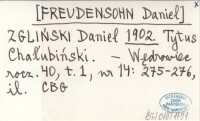 [FREUDENSOHN Daniel]
ZGLIŃSKI Daniel 1902. Tytus
Chałubiński. – Wędrowiec
rocz. 40, t. 1, nr 14: 275-276,
il. CBG